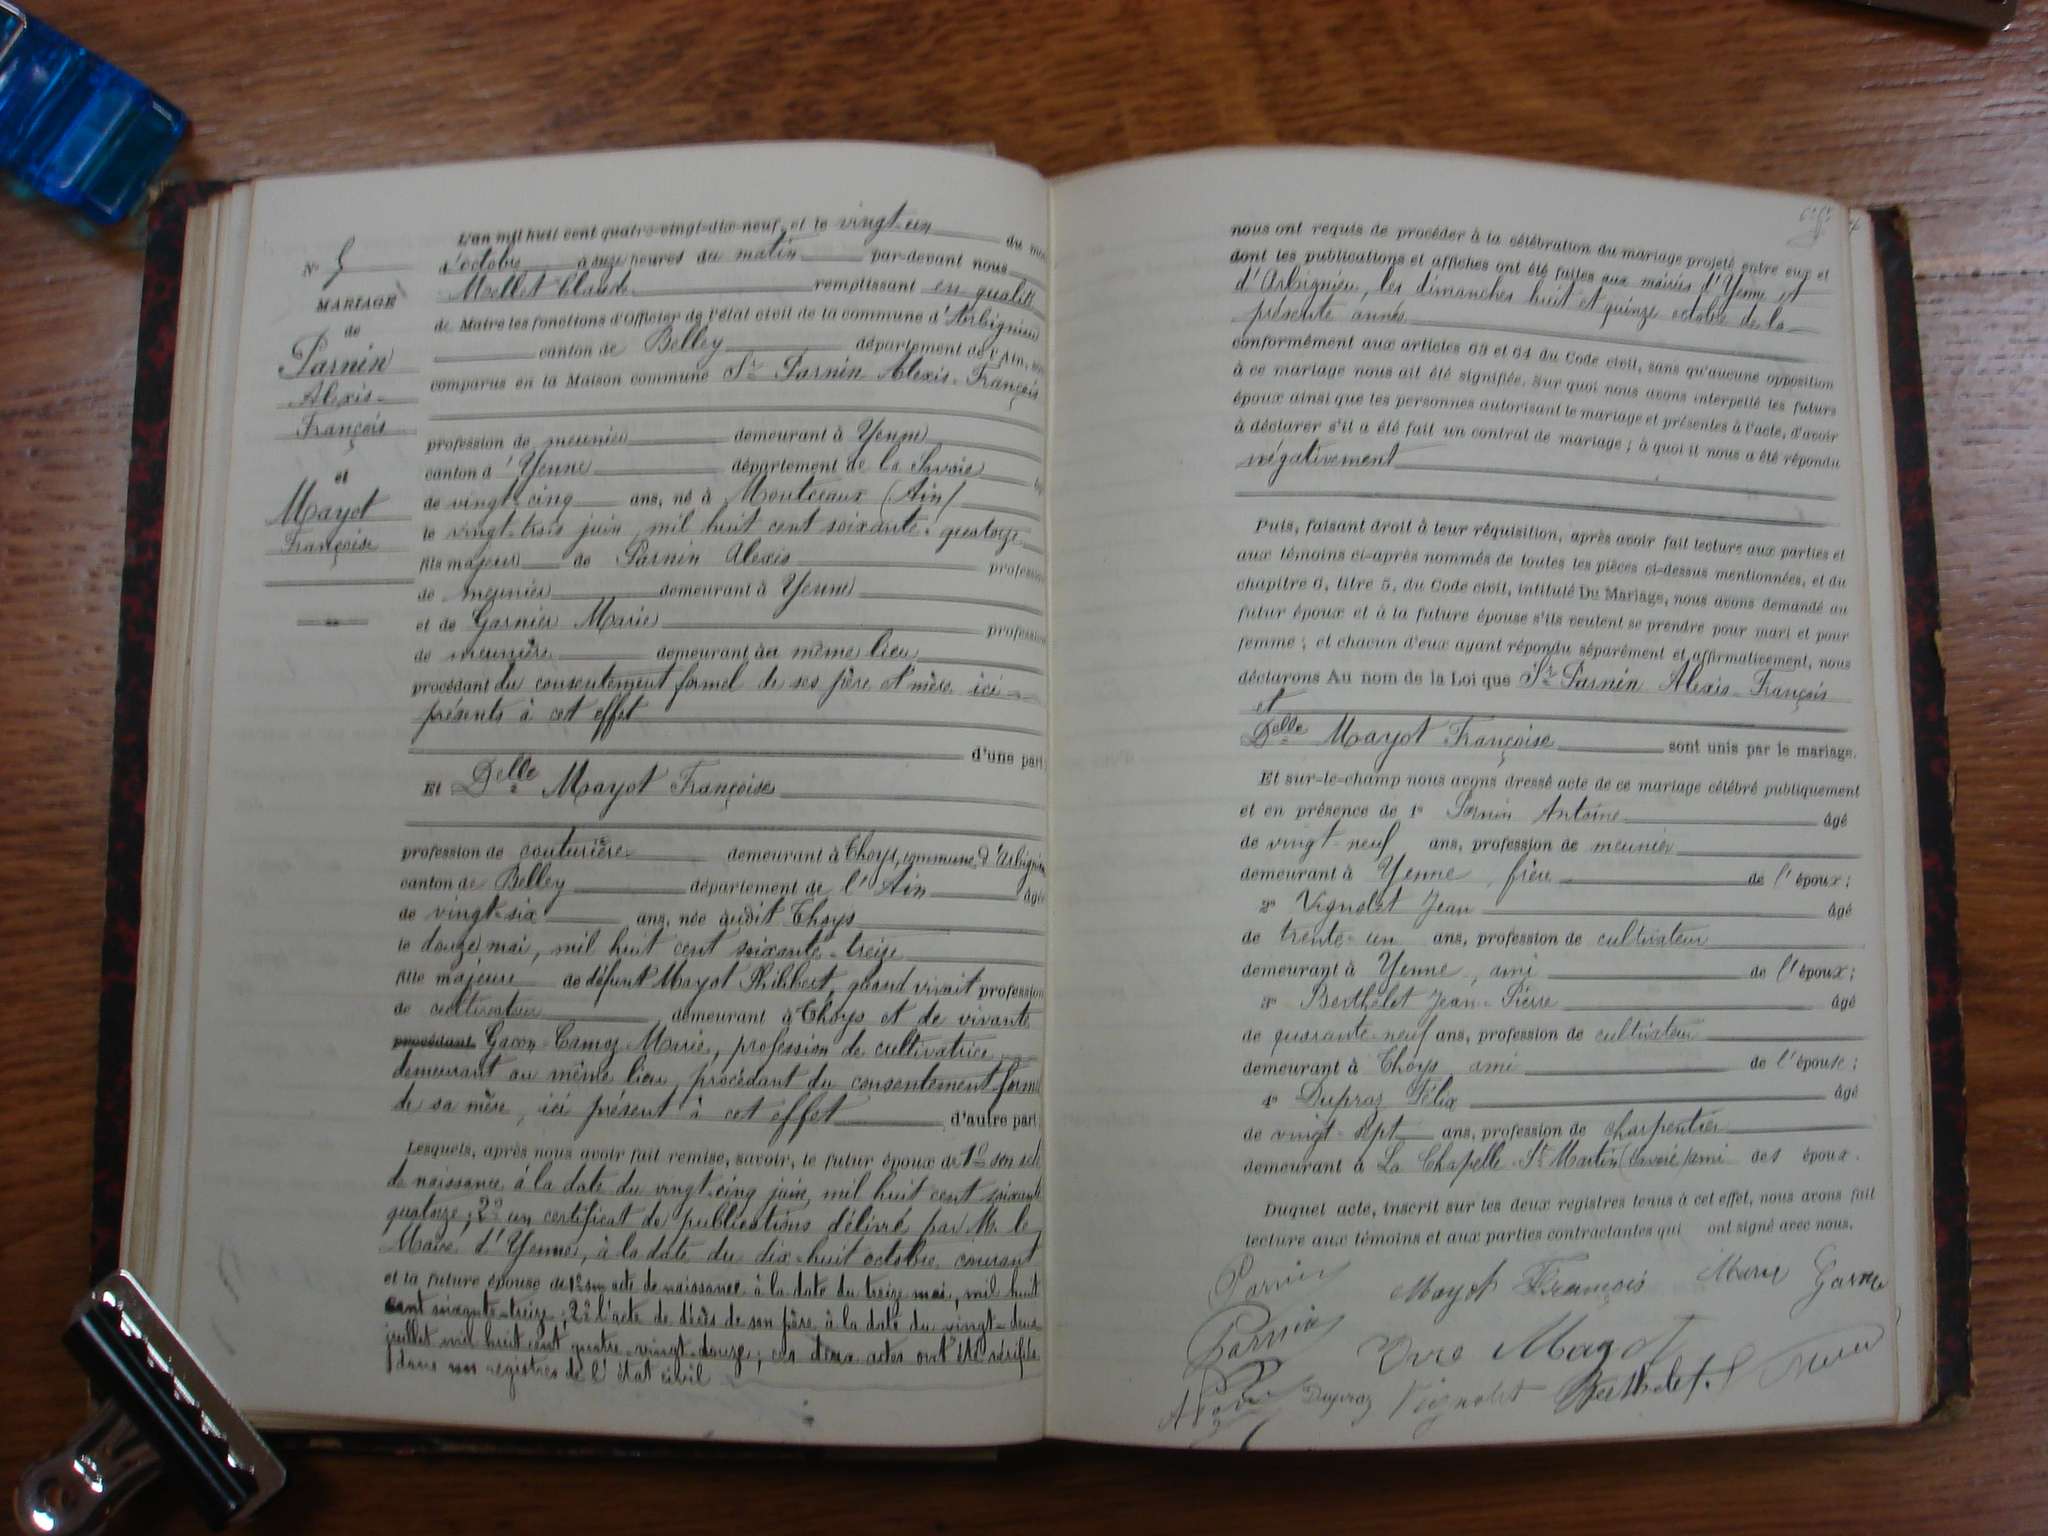 N° 5
MARIAGE
de
Parnin
Alexis-
François
et
Mayot
Françoise
L'an mil huit cent quatre-vingt-dix-neuf, et le vingt-un du mois
d'octobre à onze heures du matin par-devant nous
Mollet Claude remplissant en qualité
de Maire les fonctions d'Officier de l'état civil de la commune d'Arbignieu
canton de Belley département de l'Ain, sont
comparus en la Maison commune Sr Parnin Alexis-François
profession de meunier demeurant à Yenne
canton d'Yenne département de la Savoie âgé
de vingt-cinq ans, né à Montceaux (Ain)
le vingt-trois juin, mil huit cent soixante-quatorze
fils majeur de Parnin Alexis profession
de meunier demeurant à Yenne
et de Garnier Marie profession
de meunière demeurant au même lieu
procédant du consentement formel de ses père et mère ici
présents à cet effet
d'une part.
Et Delle Mayot Françoise
profession de couturière demeurant à Thoys, commune d'Arbignieu
canton de Belley département de l'Ain âgée
de vingt-six ans, née audit Thoys
le douze mai, mil huit cent soixante-treize
fille majeure de défunt Mayot Philibert, quand vivait profession
de cultivateur demeurant à Thoys et de vivante
procédant Gacon-Camoz Marie, profession de cultivatrice
demeurant au même lieu, procédant du consentement formel
de sa mère, ici présent à cet effet d'autre part.
Lesquels, après nous avoir fait remise, savoir, le futur époux de 1° son acte
de naissance à la date du vingt-cinq juin, mil huit cent soixante
quatorze; 2° un certificat de publications délivré par M. le
Maire d'Yenne, à la date du dix-huit octobre courant
et la future épouse de 1° son acte de naissance à la date du treize mai, mil huit
cent soixante-treize; 2° l'acte de décès de son père à la date du vingt-deux
juillet mil huit cent quatre-vingt-douze; ces deux actes ont été vérifiés
dans nos registres de l'état civil
nous ont requis de procéder à la célébration du mariage projeté entre eux et
dont les publications et affiches ont été faites aux mairies d'Yenne et
d'Arbignieu, les dimanches huit et quinze octobre de la
présente année
conformément aux articles 63 et 64 du Code civil, sans qu'aucune opposition
à ce mariage nous ait été signifiée. Sur quoi nous avons interpellé les futurs
époux ainsi que les personnes autorisant le mariage et présentes à l'acte, d'avoir
à déclarer s'il a été fait un contrat de mariage; à quoi il nous a été répondu
négativement
Puis, faisant droit à leur réquisition, après avoir fait lecture aux parties et
aux témoins ci-après nommés de toutes les pièces ci-dessus mentionnées, et du
chapitre 6, titre 5, du Code civil, intitulé Du Mariage, nous avons demandé au
futur époux et à la future épouse s'ils veulent se prendre pour mari et pour
femme; et chacun d'eux ayant répondu séparément et affirmativement, nous
déclarons Au nom de la Loi que Sr Parnin Alexis-François
et
Delle Mayot Françoise sont unis par le mariage.
Et sur-le-champ nous avons dressé acte de ce mariage célébré publiquement
et en présence de 1° Parnin Antoine âgé
de vingt-neuf ans, profession de meunier
demeurant à Yenne, frère de l'époux;
2° Vignolet Jean âgé
de trente-un ans, profession de cultivateur
demeurant à Yenne, ami de l'époux;
3° Berthelet Jean-Pierre âgé
de quarante-neuf ans, profession de cultivateur
demeurant à Thoys, ami de l'épouse;
4° Dupraz Félix âgé
de vingt-sept ans, profession de charpentier
demeurant à La Chapelle-St Martin (Savoie) ami des époux.
Duquel acte, inscrit sur les deux registres tenus à cet effet, nous avons fait
lecture aux témoins et aux parties contractantes qui ont signé avec nous.
Parnin Mayot François Marie Garnie
Parnin Vve Mayot
Dupraz Vignolet Berthelet